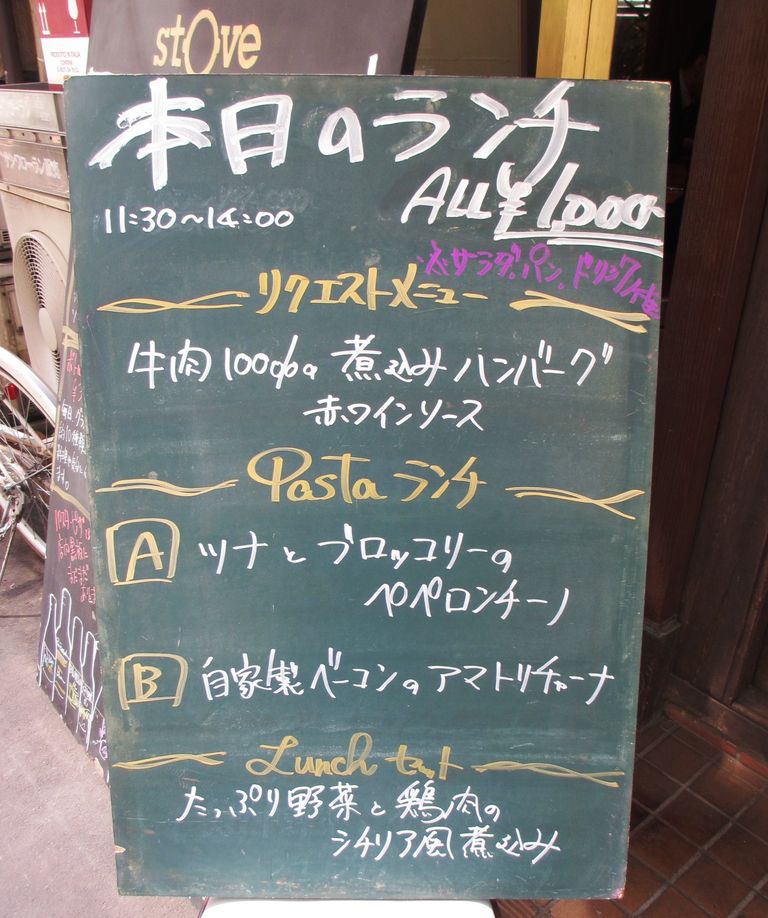 stOve
本日のランチ
11:30〜14:00
ALL ¥1,000-
サラダ、パン、ドリンク付
リクエストメニュー
牛肉100%の煮込みハンバーグ
赤ワインソース
Pastaランチ
A ツナとブロッコリーの
ペペロンチーノ
B 自家製ベーコンのアマトリチャーナ
Lunchセット
たっぷり野菜と鶏肉の
シチリア風煮込み